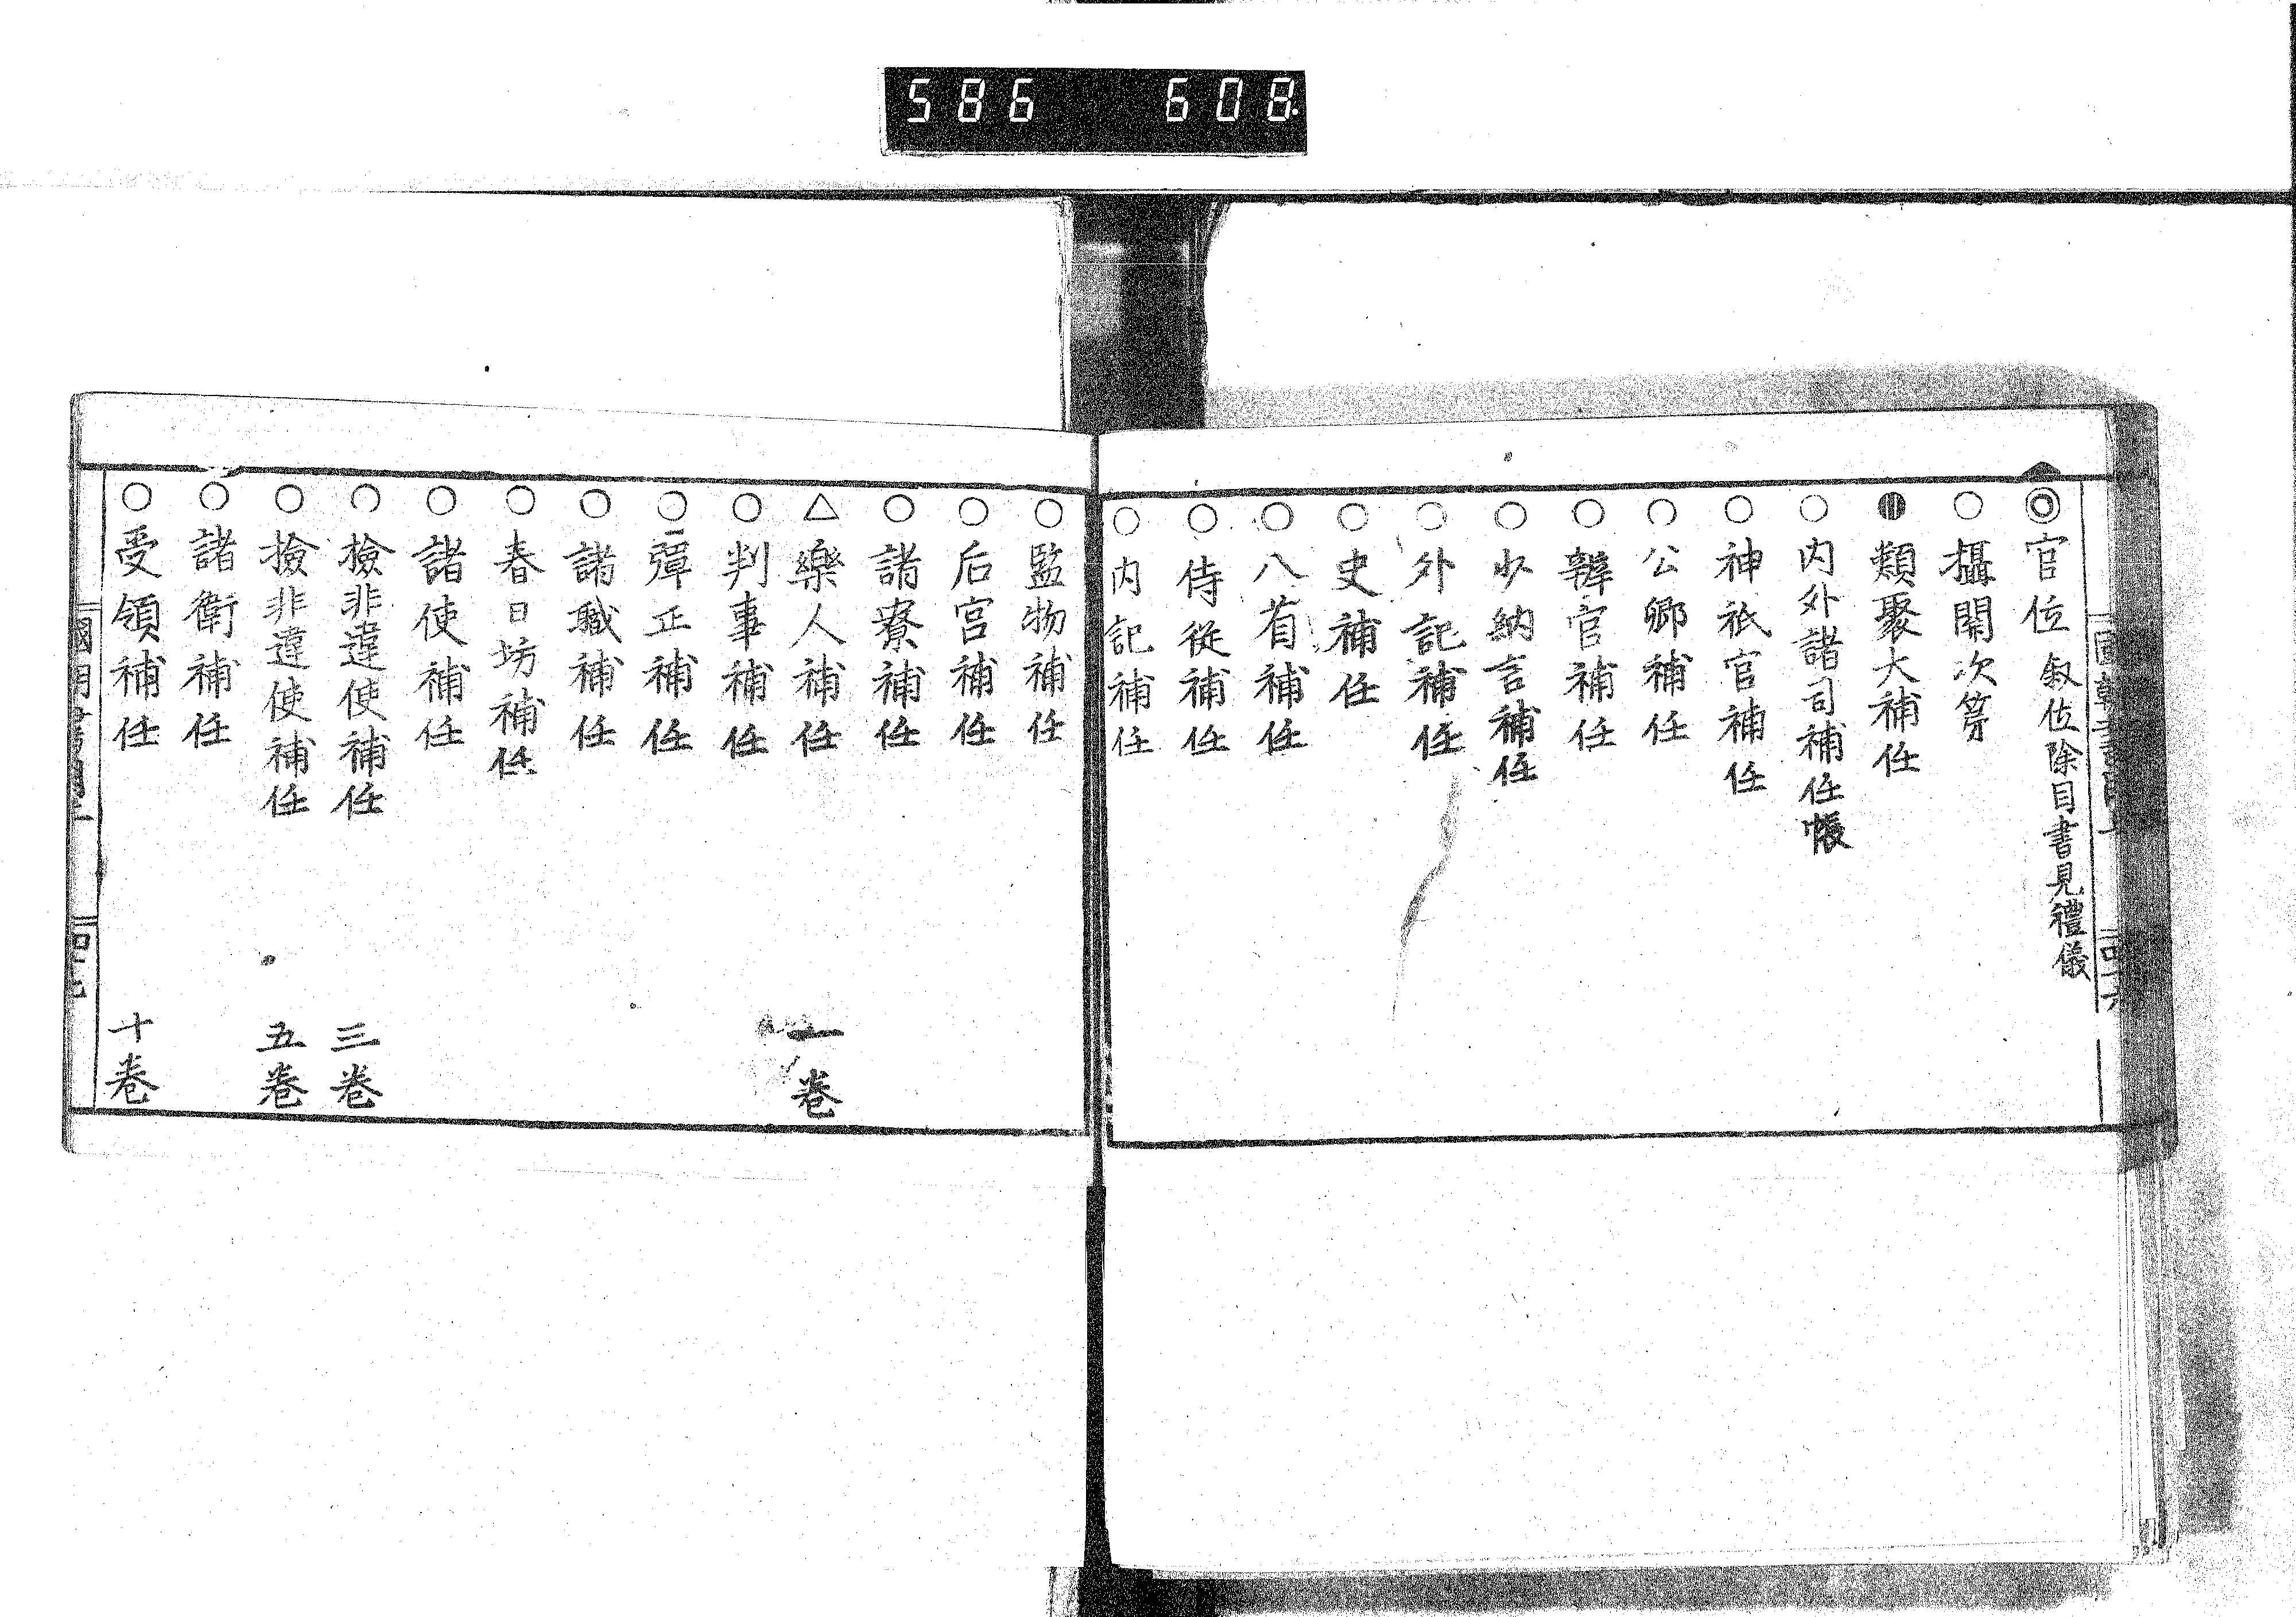 586 608.
◎官位 叙位除目書見禮儀
○攝関次第
◍類聚大補任
○内外諸司補任帳
○神祇官補任
○公卿補任
○辨官補任
○少納言補任
○外記補任
○史補任
○八省補任
○侍從補任
○内記補任
○監物補任
○后宮補任
○諸寮補任
△樂人補任 一巻
○判事補任
○彈正補任
○諸職補任
○春日坊補任
○諸使補任
○撿非違使補任 三巻
○撿非違使補任 五巻
○諸衛補任
○受領補任 十巻